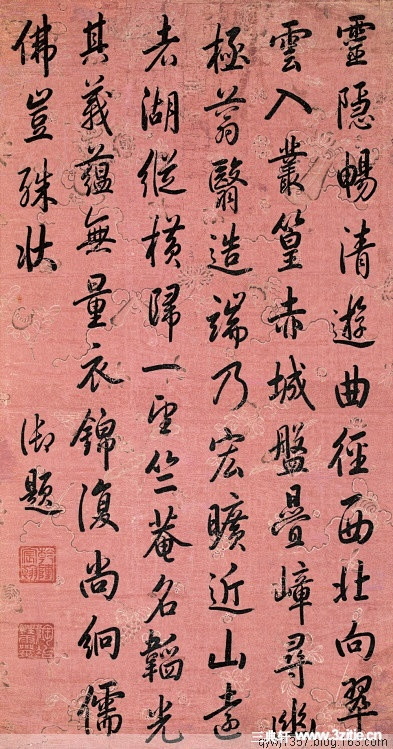 靈隱暢清遊曲徑西北向翠
雲入叢篁赤城盤疊嶂尋幽
極蓊翳造端乃宏曠近山遠
者湖縱橫歸一望竺菴名韜光
其義蘊無量衣錦復尚絅儒
佛豈殊狀
御題
三典轩 www.3zitie.cn